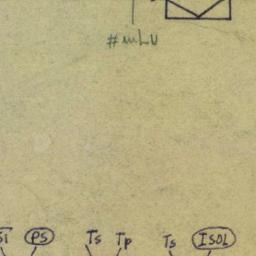 #mLU
SI PS Ts Tp Ts ISOL